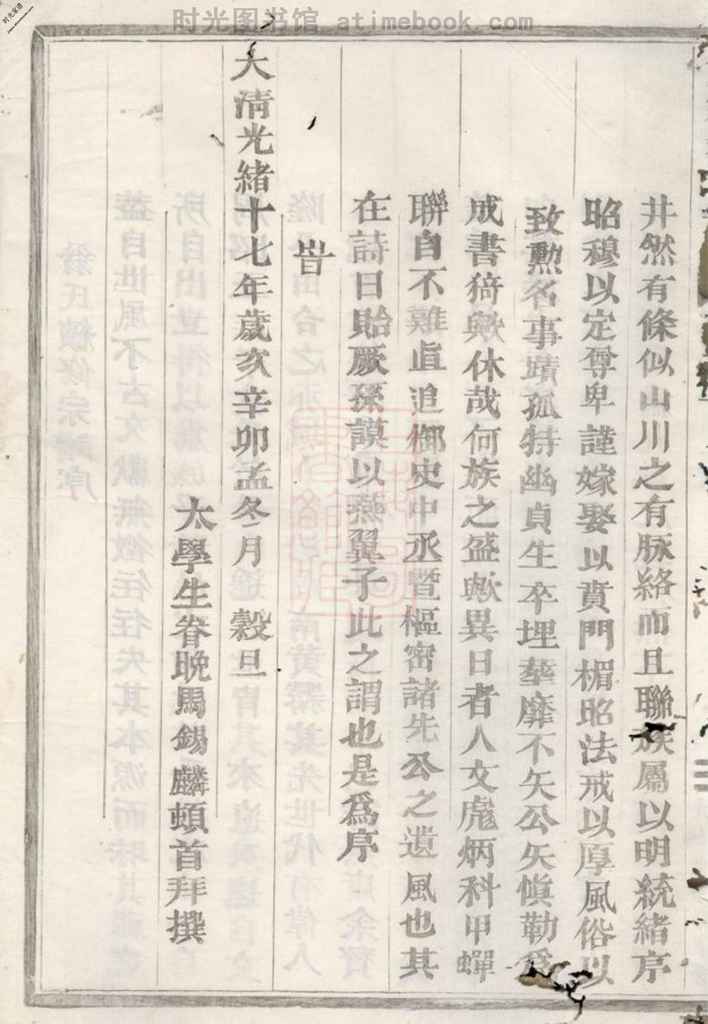 时光图书馆 atimebook.com
井然有條似山川之有脉絡而且聯族屬以明統緒序
昭穆以定尊卑謹嫁娶以賁門楣昭法戒以厚風俗以
致勲名事蹟孤特幽貞生卒埋塟靡不矢公矢慎勒為
成書猗歟休哉何族之盛歟異日者人文彪炳科甲蟬
聯自不難直追御史中丞曁樞密諸先公之遺風也其
在詩曰貽厥孫謨以燕翼子此之謂也是為序
旹
大清光緒十七年歲次辛卯孟冬月 穀旦
太學生眷晚馬錫麟頓首拜撰